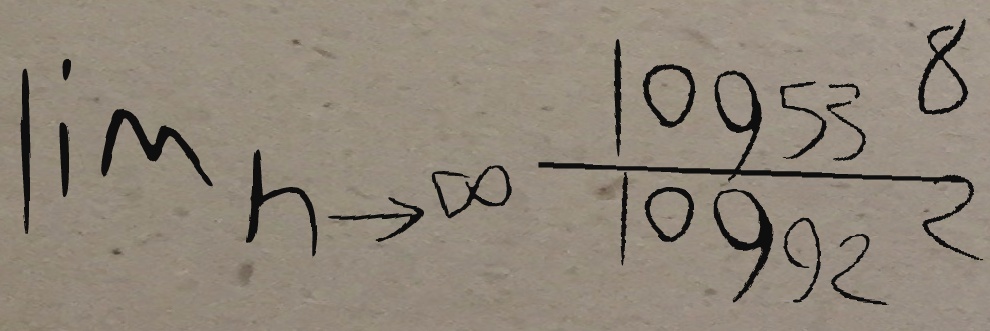 \lim_{h \to \infty} \frac{\log_{53} 8}{\log_{92} 2}